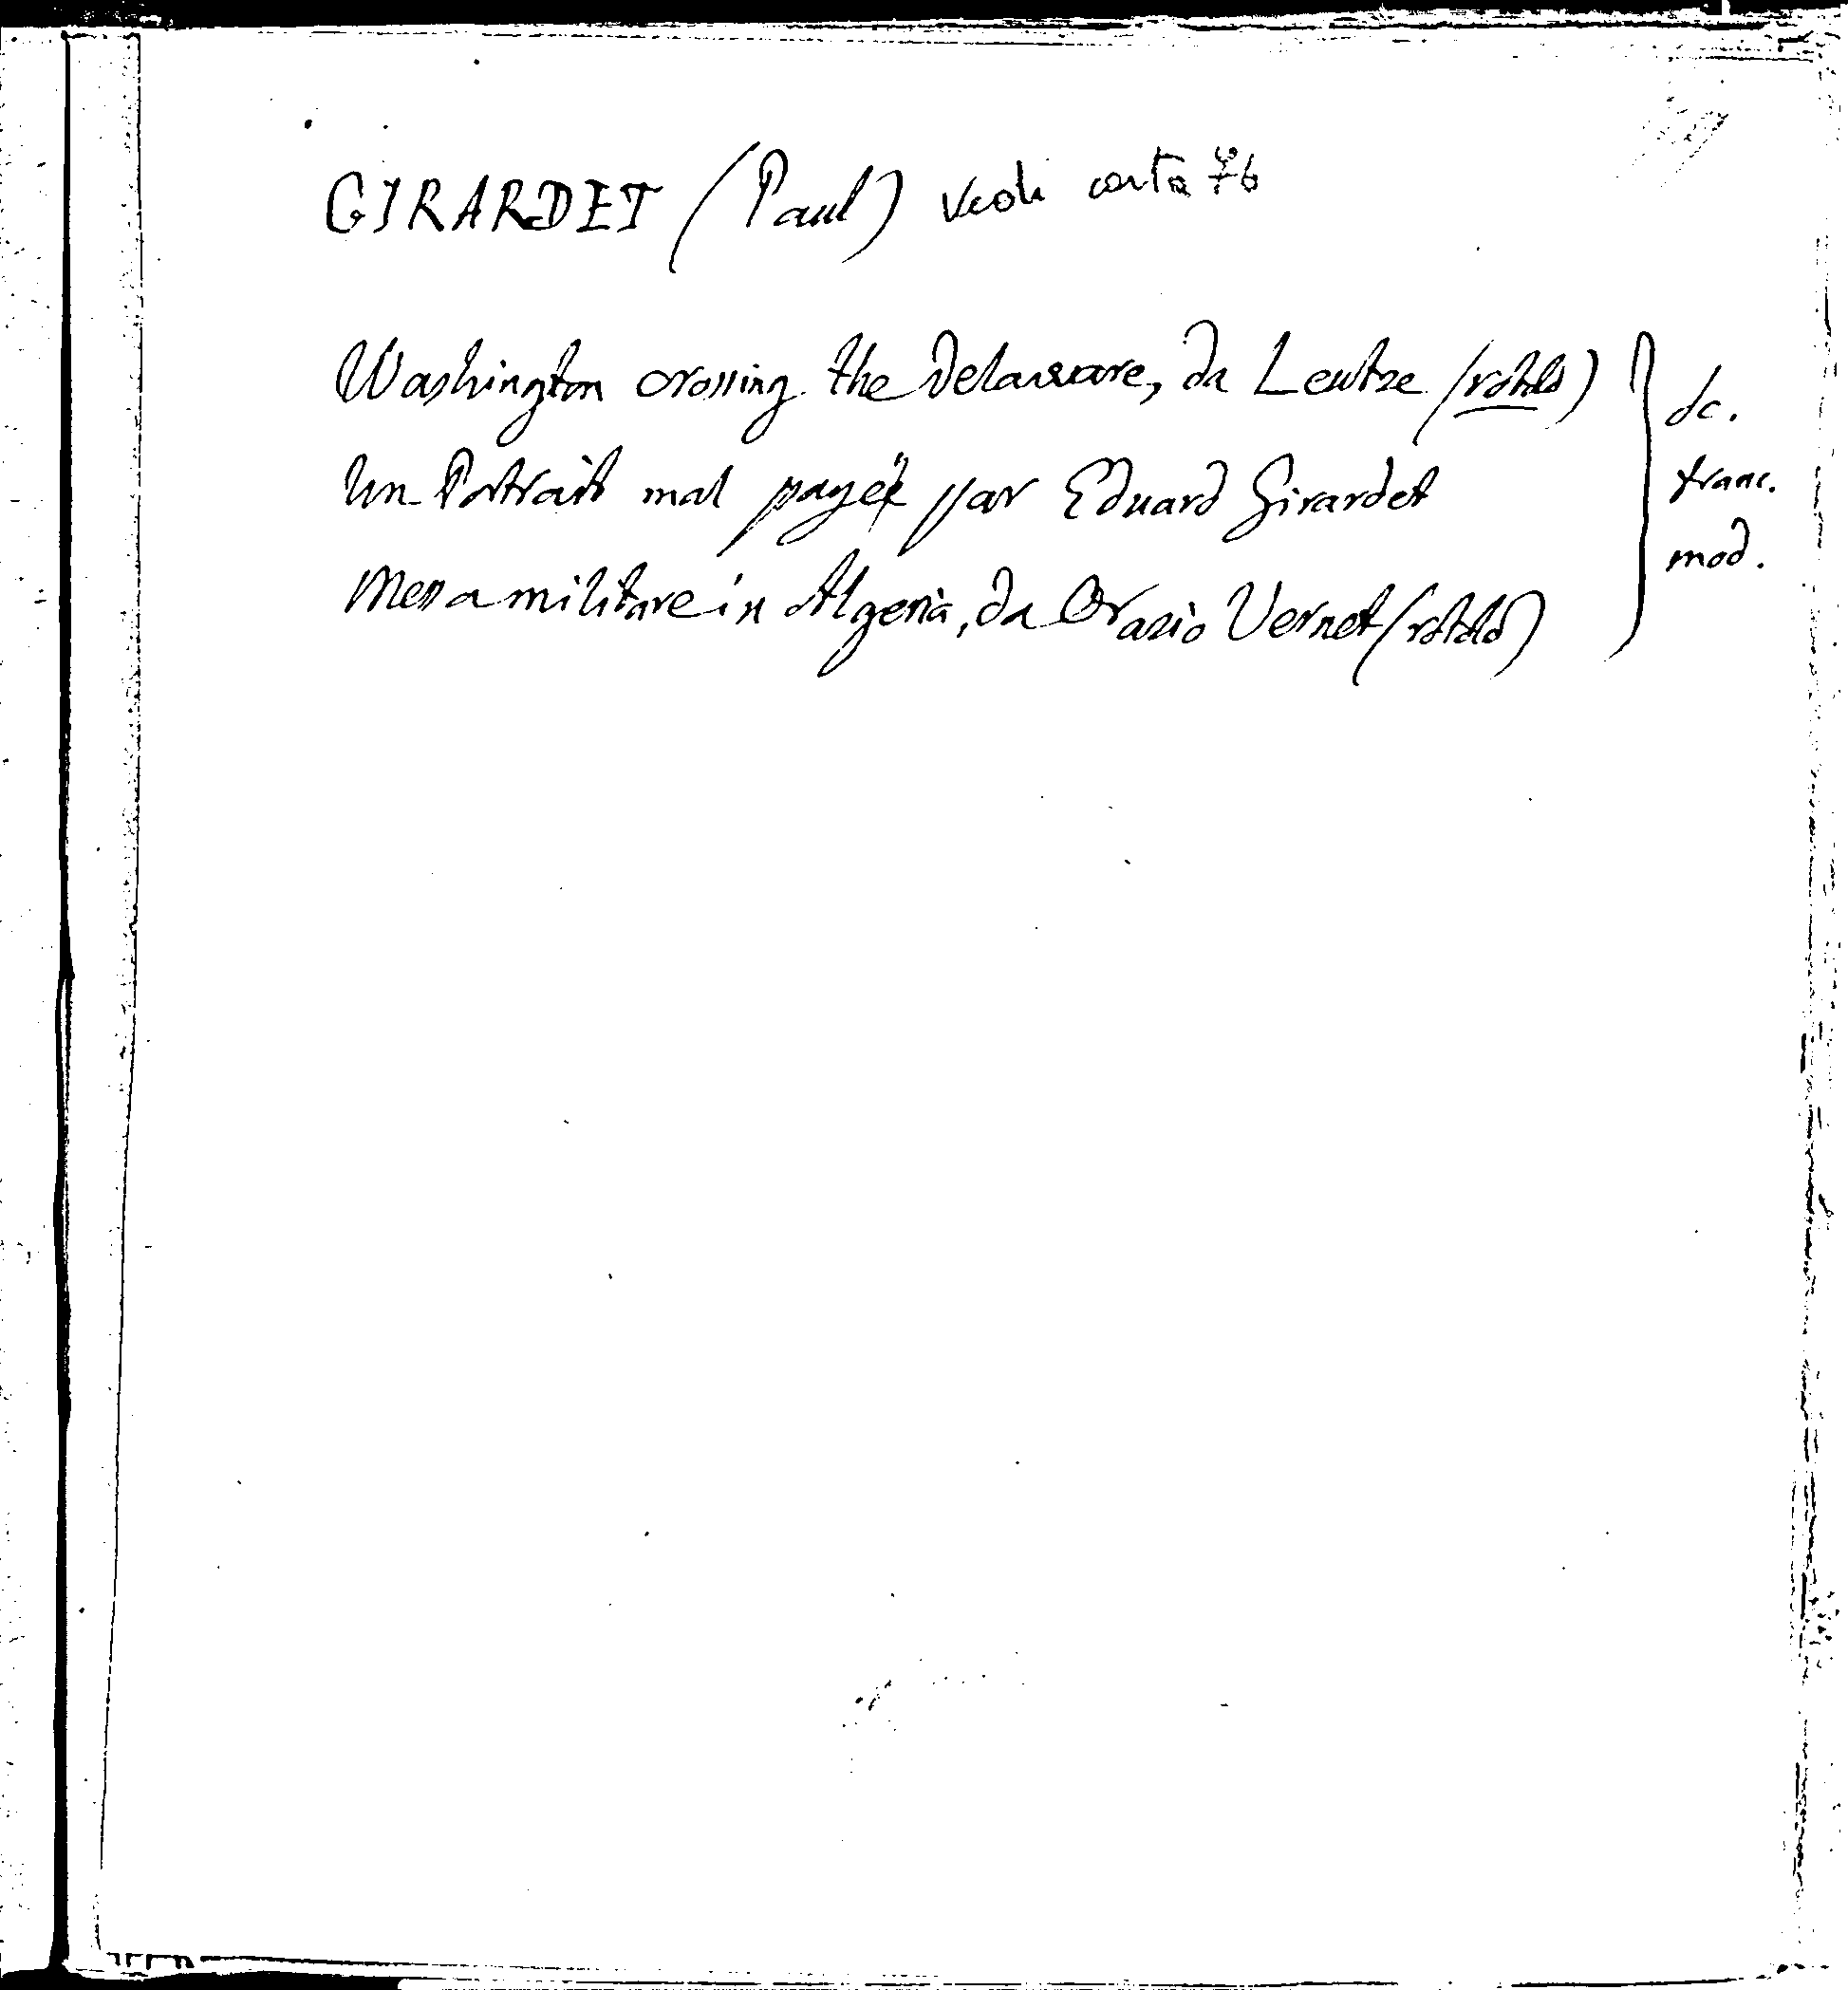 GIRARDET (Paul) Vedi carta 76
Washington crossing the Delaware, da Leutze (rotolo)
Un Portrait mal payé par Eduard Girardet
Messa militare in Algeria, da Orazio Vernet (rotolo)
sc.
franc.
mod.